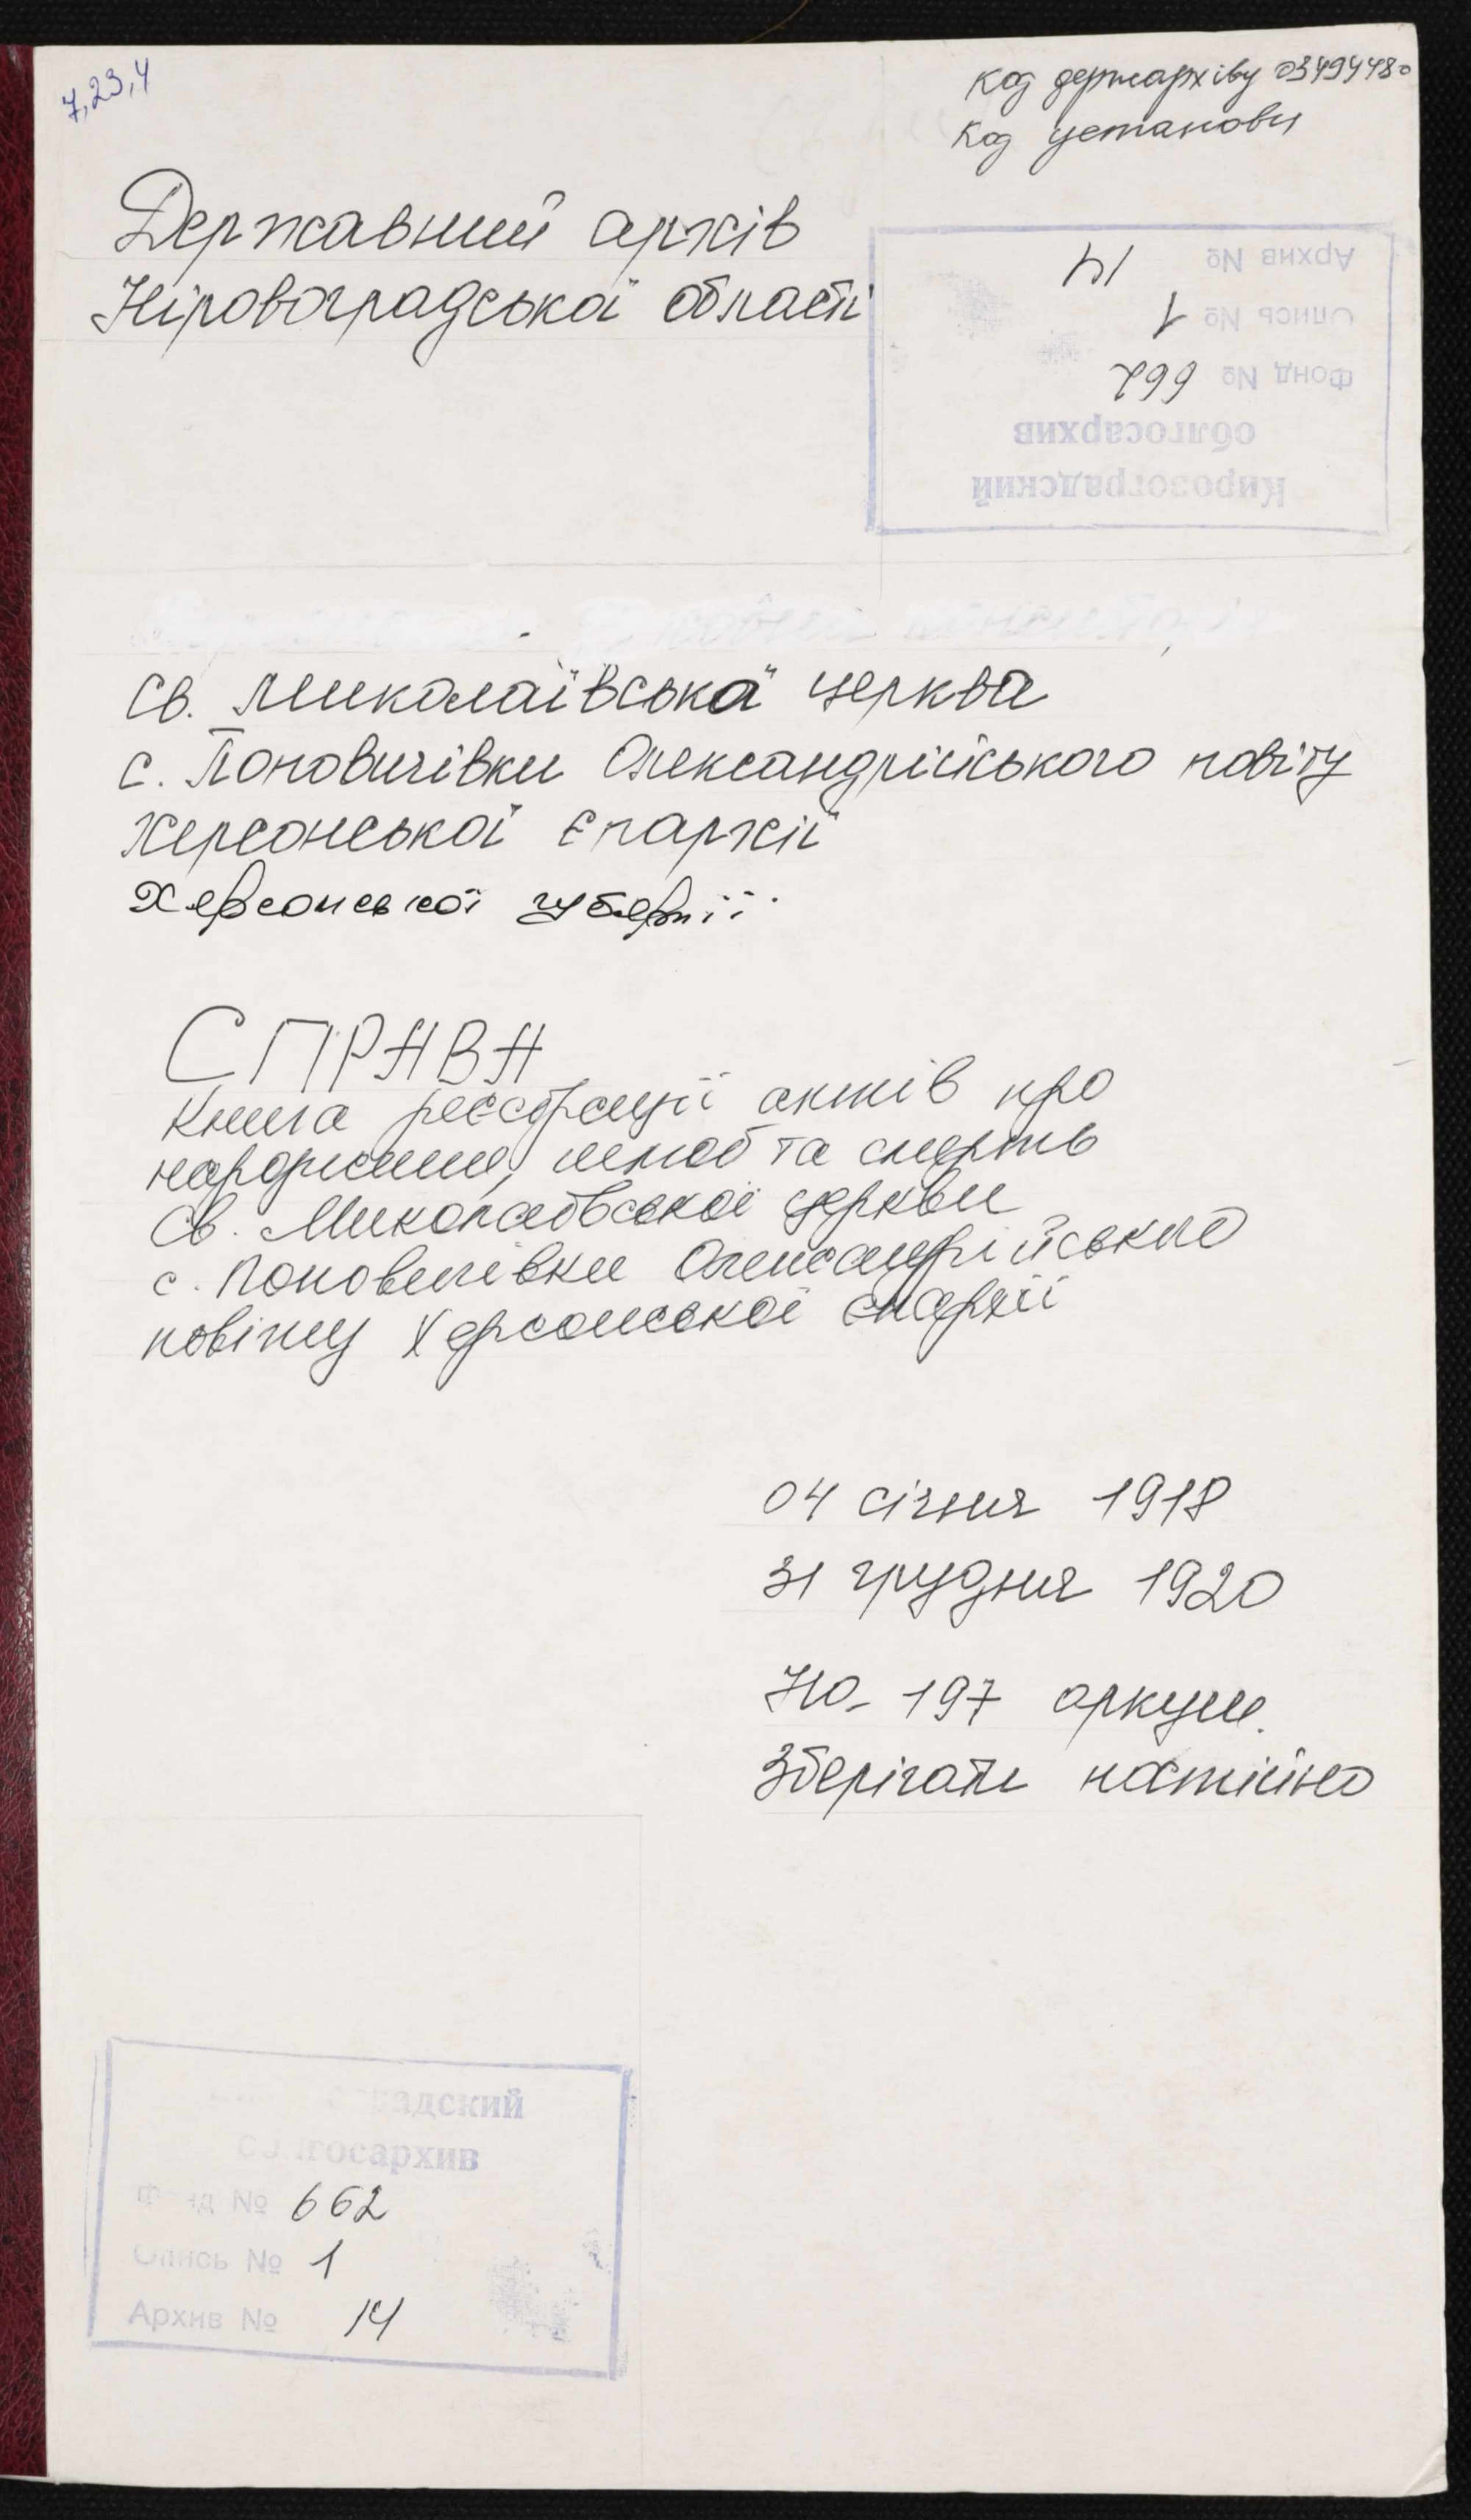 7,23,4
код держархіву 03494480
Код установи
Державний архів
Кіровоградської області
Архив № 14
Опись № 1
Фонд № 662
облгосархив
Кировоградский
Св. Миколаївська церква
с. Поповичівки Олександрійського повіту
Херсонської єпархії
Херсонської губернії
СПРАВА
Книга реєстрації актів про
народження, шлюб та смерть
Св. Миколаївської церкви
с. Поповичівки Олександрійського
повіту Херсонської єпархії
04 січня 1918
31 грудня 1920
На 197 аркуш.
Зберігати постійно
адский
госархив
Фонд № 662
Опись № 1
Архив № 14